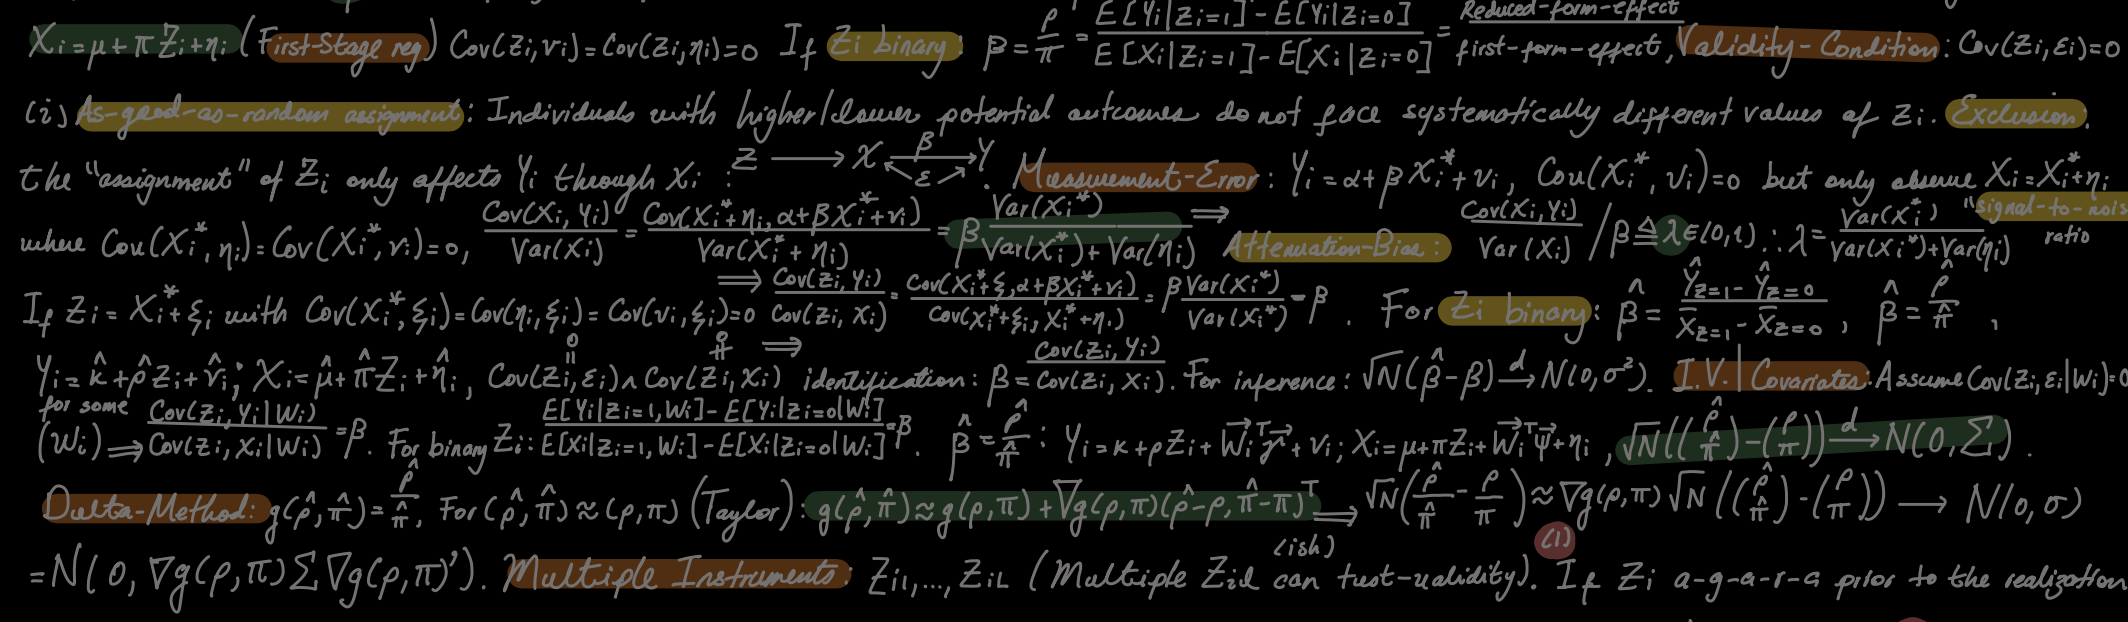 X_i = μ + πZ_i + η_i (First-Stage reg) Cov(Z_i, v_i) = Cov(Z_i, η_i) = 0 If Z_i binary: β = ρ/π = (E[Y_i|Z_i=1] - E[Y_i|Z_i=0]) / (E[X_i|Z_i=1] - E[X_i|Z_i=0]) = Reduced-form-effect / first-form-effect, Validity-Condition: Cov(Z_i, ε_i) = 0
(i) As-good-as-random assignment: Individuals with higher/lower potential outcomes do not face systematically different values of Z_i. Exclusion:
the "assignment" of Z_i only affects Y_i through X_i: Z → X →^β Y, ε. Measurement-Error: Y_i = α + βX_i^* + v_i, Cov(X_i^*, v_i) = 0 but only observe X_i = X_i^* + η_i
where Cov(X_i^*, η_i) = Cov(X_i^*, v_i) = 0, Cov(X_i, Y_i)/Var(X_i) = Cov(X_i^* + η_i, α + βX_i^* + v_i)/Var(X_i^* + η_i) = β Var(X_i^*)/(Var(X_i^*) + Var(η_i)) ⟹ Attenuation-Bias: Cov(X_i, Y_i)/Var(X_i) / β ≜ λ ∈ (0,1) ∴ λ = Var(X_i^*)/(Var(X_i^*) + Var(η_i)) "signal-to-nois ratio
If Z_i = X_i^* + ξ_i with Cov(X_i^*, ξ_i) = Cov(η_i, ξ_i) = Cov(v_i, ξ_i) = 0 ⟹ Cov(Z_i, Y_i)/Cov(Z_i, X_i) = Cov(X_i^* + ξ, α + βX_i^* + v_i)/Cov(X_i^* + ξ_i, X_i^* + η_i) = β Var(X_i^*)/Var(X_i^*) = β. For Z_i binary: β̂ = (Ŷ_{Z=1} - Ŷ_{Z=0})/(X̄_{Z=1} - X̄_{Z=0}), β̂ = ρ̂/π̂,
Y_i = κ̂ + ρ̂Z_i + v̂_i; X_i = μ̂ + π̂Z_i + η̂_i, Cov(Z_i, ε_i) = 0 ∧ Cov(Z_i, X_i) ≠ 0 ⟹ identification: β = Cov(Z_i, Y_i)/Cov(Z_i, X_i). For inference: √N(β̂ - β) →^d N(0, σ²). I.V.|Covariates: Assume Cov(Z_i, ε_i|W_i) = 0
for some (W_i) ⟹ Cov(Z_i, Y_i|W_i)/Cov(Z_i, X_i|W_i) = β. For binary Z_i: (E[Y_i|Z_i=1, W_i] - E[Y_i|Z_i=0|W_i])/(E[X_i|Z_i=1, W_i] - E[X_i|Z_i=0|W_i]) = β. β̂ = ρ̂/π̂: Y_i = κ + ρZ_i + W_i^T γ + v_i; X_i = μ + πZ_i + W_i^T ψ + η_i, √N((ρ̂ π̂) - (ρ π)) →^d N(0, Σ).
Dulta-Method: g(ρ̂, π̂) = ρ̂/π̂, For (ρ̂, π̂) ≈ (ρ, π) (Taylor): g(ρ̂, π̂) ≈ g(ρ, π) + ∇g(ρ, π)(ρ̂ - ρ, π̂ - π)^T ⟹ (ish) √N(ρ̂/π̂ - ρ/π) ≈ ∇g(ρ, π)√N((ρ̂ π̂) - (ρ π)) → N(0, σ)
= N(0, ∇g(ρ, π)Σ∇g(ρ, π)'). Multiple Instruments: Z_{i1}, ..., Z_{iL} (Multiple Z_{il} can tust-validity). (1) If Z_i a-g-a-r-a prior to the realization